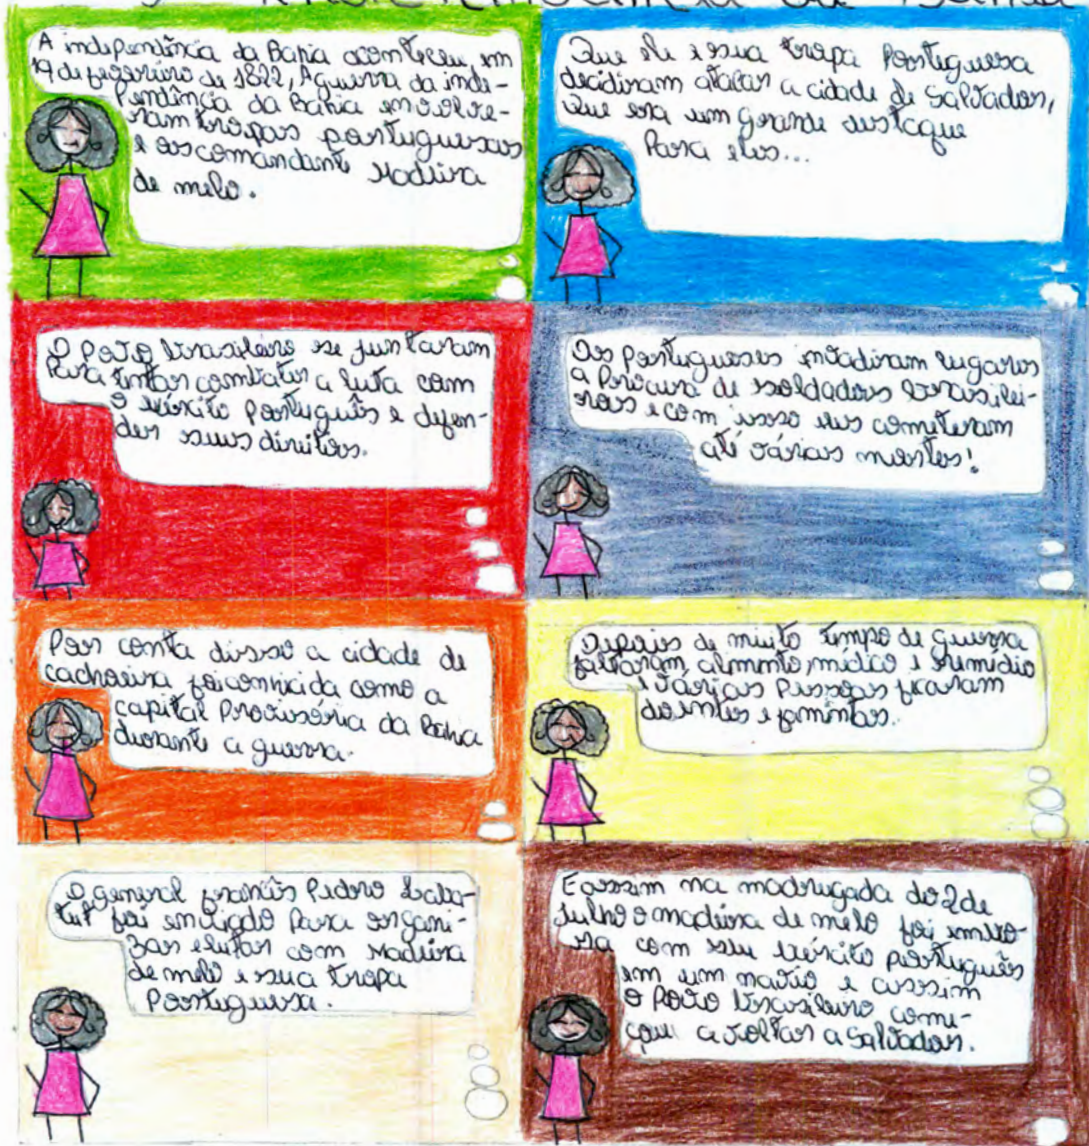 Independência da Bahia
A independência da Bahia aconteceu em
19 de fevereiro de 1822, A guerra da inde-
pendência da Bahia envolve-
ram tropas portuguesas
e os comandante Madeira
de melo.
Que ele e sua tropa Portuguesa
decidiram atacar a cidade de Salvador,
que era um grande destaque
Para eles...
O povo brasileiro se juntaram
Para tentar combater a luta com
o exército Português e defen-
der seus direitos.
Os portugueses invadiram lugares
a Procura de soldados brasilei-
ros e com isso eles cometeram
até várias mortes!
Por conta disso a cidade de
cachoeira foi conhecida como a
capital Provisória da Bahia
durante a guerra.
Depois de muito tempo de guerra
faltaram alimento, médico e remédio
e várias Pessoas ficaram
doentes e famintas.
O general francês Pedro Laba-
tut foi enviado Para organi-
zar e lutar com Madeira
de melo e sua tropa
Portuguesa.
E assim na madrugada do 2 de
Julho o madeira de melo foi embo-
ra com seu exército português
em um navio e assim
o Povo brasileiro come-
çou a voltar a Salvador.